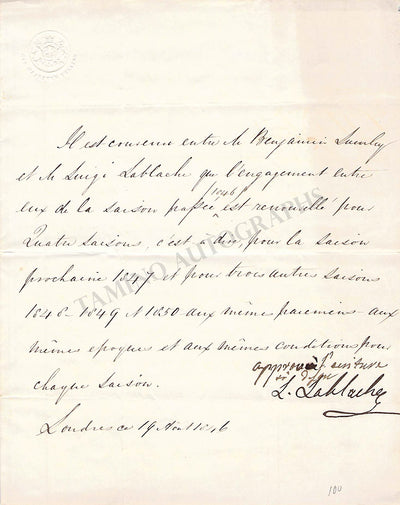 Il est convenu entre M Benjamin Lumley
et M Luigi Lablache que l'engagement entre
eux de la saison passée 1846 est renouvellé pour
Quatre saisons, c'est a dire, pour la saison
prochaine 1847 et pour trois autres saisons
1848 - 1849 et 1850 aux même paiemens - aux
mêmes epoques et aux mêmes conditions pour
chaque saison.
approuvé l'ecriture
L. Lablache
Londres ce 19 Aout 1846
TAMINO AUTOGRAPHS
100